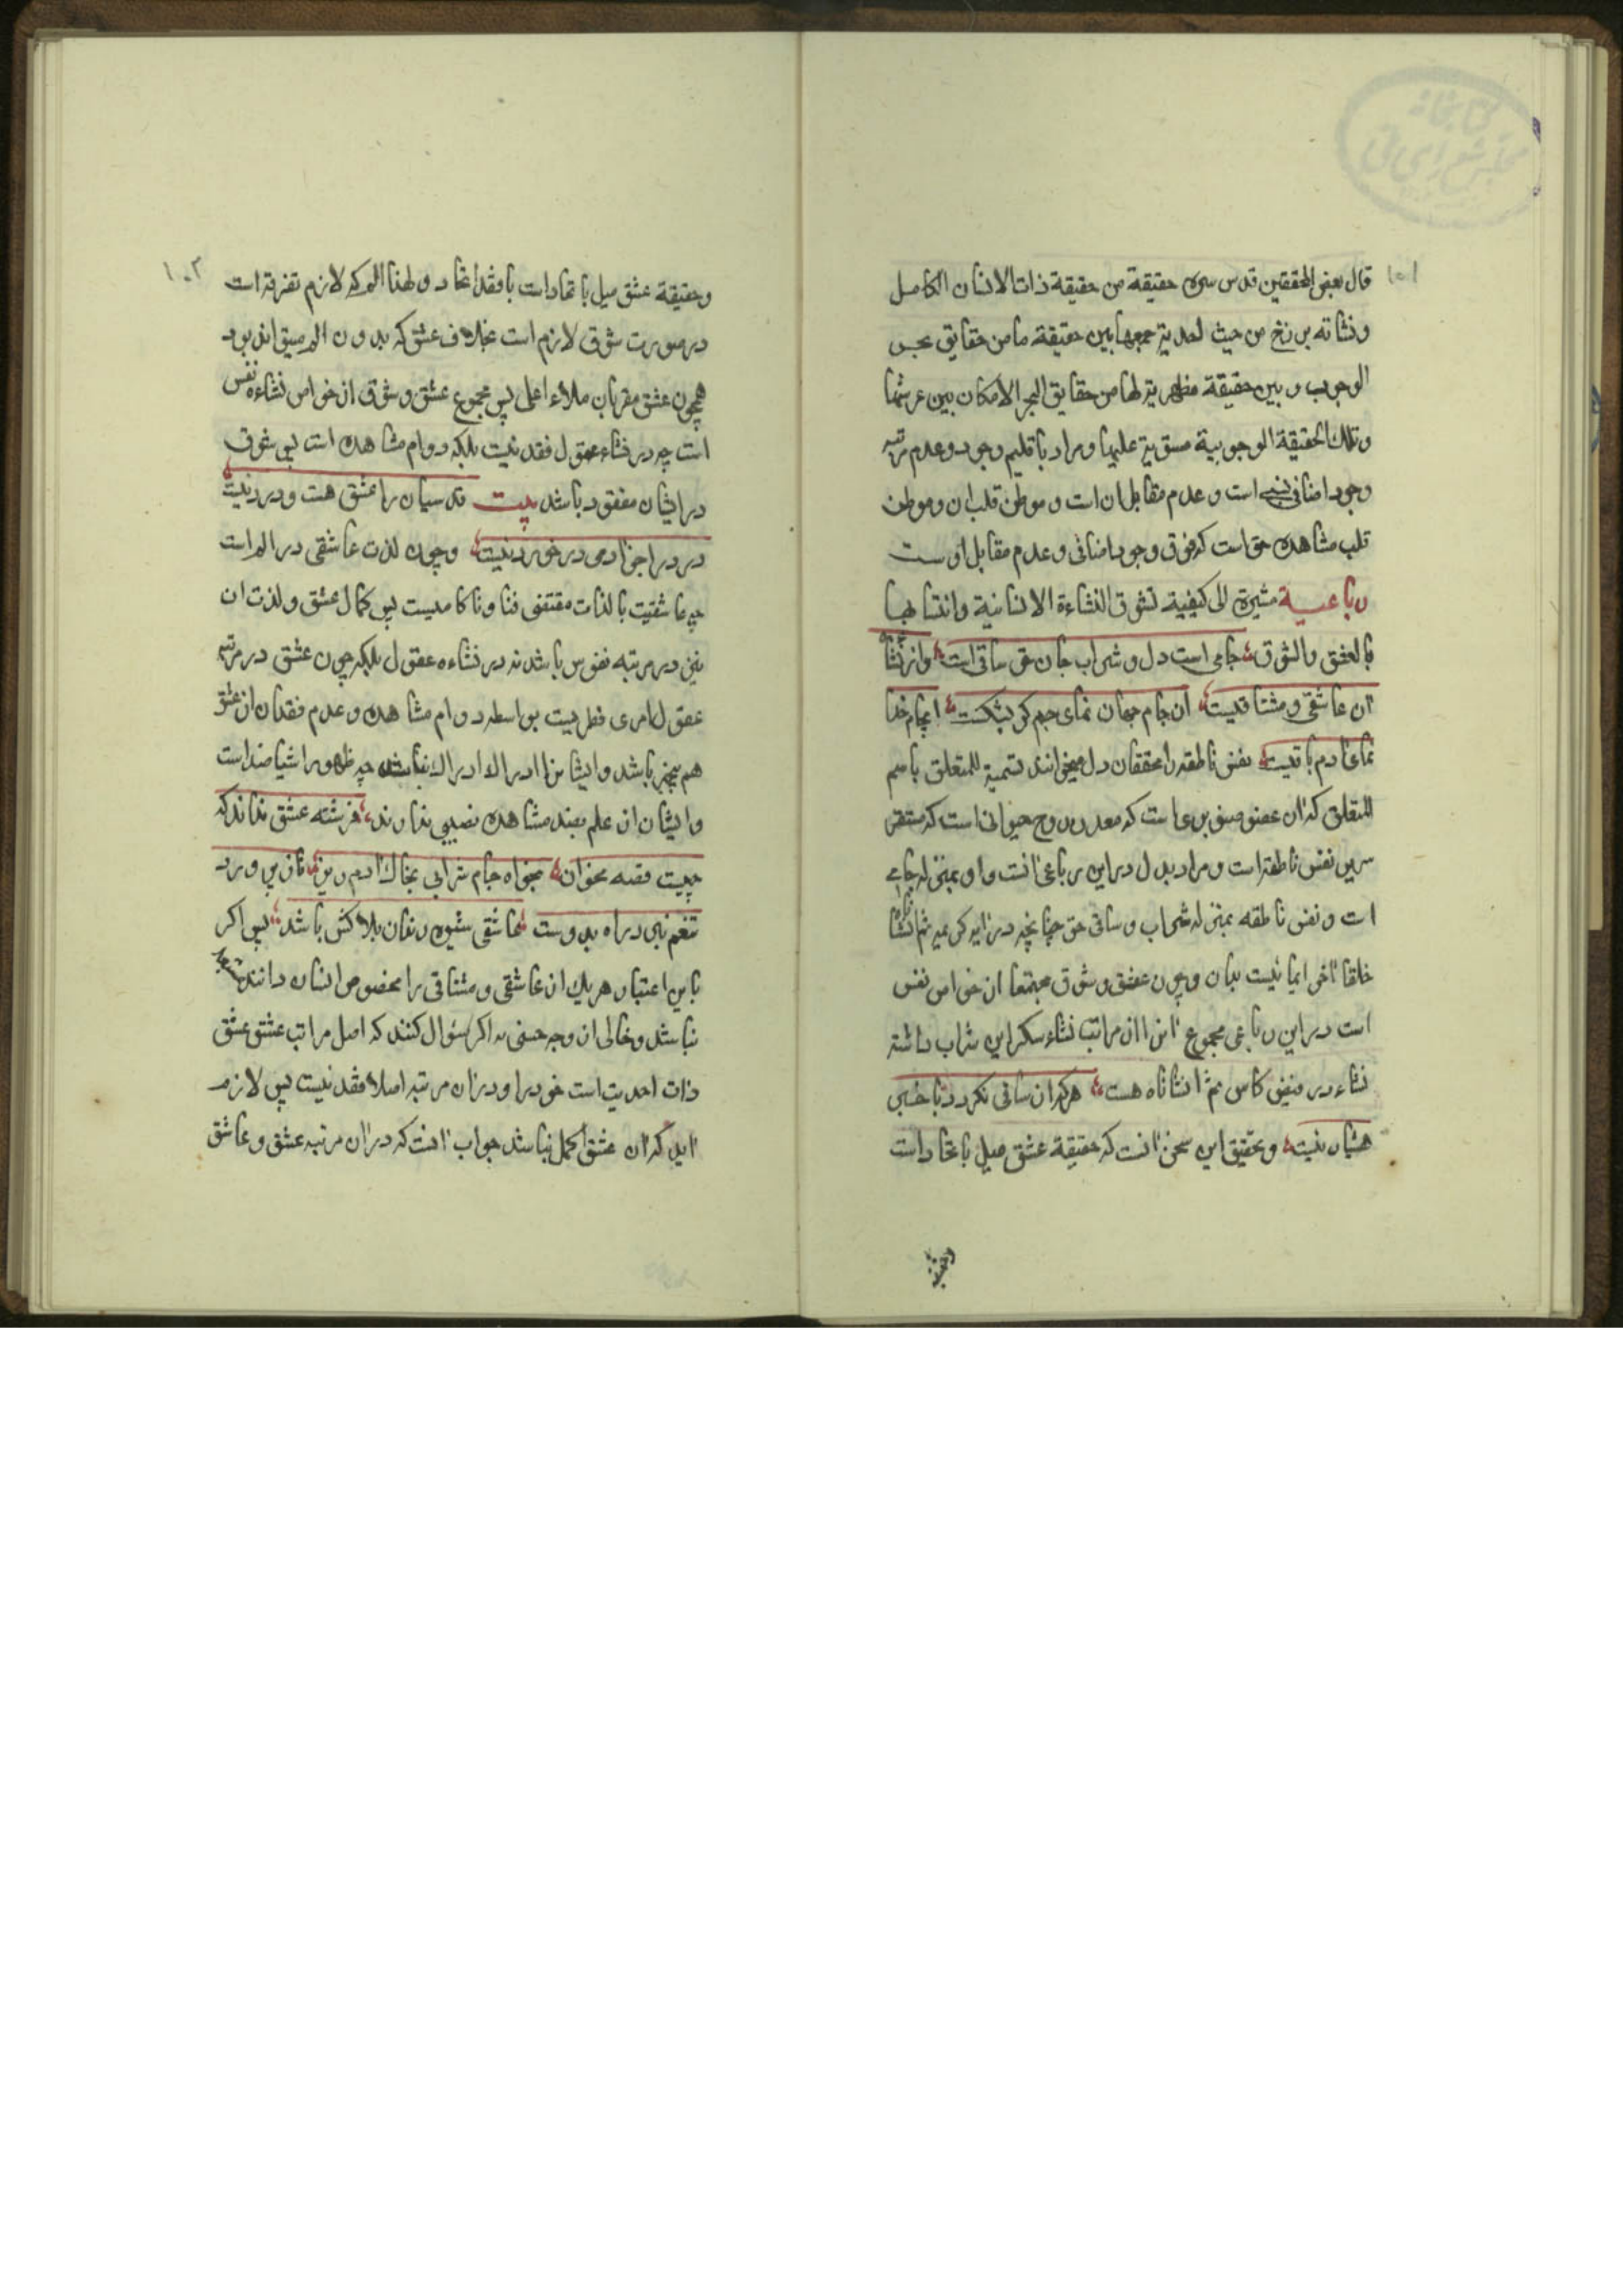 ۱۰۱
قال بعض المحققین قدس سره حقیقة من حقیقة ذات الانسان الکامل
ونشاته برزخ من حیث احدیة جمعها بین حقیقة ما من حقایق بحر
الوجوب و بین حقیقة مظهریة لها من حقایق البحر الامکان بین عرشها
وتلک الحقیقة الوجوبیة مستویة علیها و مراد باقلیم وجود وعدم مرتبه
وجود اضافی است و عدم مقابل ان است و موطن قلب ان و موطن
قلب مشاهده حق است که فوق وجود اضافی و عدم مقابل اوست
رباعیه مشیرة الی کیفیة تشوق النشاءة الانسانیة وانتسابها
بالعشق والشوق جامی است دل و شراب جان حق ساقی است وانرا نشاه
آن عاشقی و مشتاقیست آن جام جهان نمای جم کر بشکست اینجام خدا
نمای آدم باقیست نفس ناطقه را محققان دل میخوانند تسمیة للمتعلق باسم
المتعلق که آن عضو صنوبری است که معدن روح حیوانی است که مستقر
سریر نفس ناطقه است و مراد بدل در این رباعی آنست و او بمنزله جامی
است و نفس ناطقه بمنزله شراب و ساقی حق چنانچه در آیه کریمه ثم انشاناه
خلقا آخر ایمائیست بدان و چون عشق و شوق مجتمعا از خواص نفس
است در این رباعی مجموع آنرا از مراتب نشاء سکر این شراب داشته
نشاء در فیض کاس ثم انشاناه هست هرکه از ساقی نکردد با خبر
هشیار نیست و تحقیق این سخن آنست که حقیقة عشق میل باتحاد است
وحقیقة
۱۰۲
وحقیقة عشق میل باتحاد است با فقد اتحاد و لهذا الم که لازم تفرقه است
در صورت شوق لازم است بخلاف عشق که بدون الم میتواند بود
همچون عشق مقربان ملاء اعلی پس مجموع عشق و شوق از خواص نشاءه نفس
است چه در نشاء عقول فقد نیست بلکه دوام مشاهده است پس شوق
در ایشان مفقود باشد بیت قدسیان را عشق هست و درد نیست
درد را جز آدمی در خورد نیست و چون لذت عاشقی در الم است
چه عاشقیت بالذات مقتضی فنا و ناکامیست پس کمال عشق و لذت ان
نیز در مرتبه نفوس باشد نه در نشاءه عقول بلکه چون عشق در مرتبه
عقول امری فطریست بواسطه دوام مشاهده و عدم فقدان از عشق
هم بیخبر باشد و ایشانرا ادراک ادراک نباشد چه ظهور اشیا ضداست
وایشان از علم بضد مشاهده نصیبی ندارند فرشته عشق نداند که
چیست قصه مخوان بخواه جام شرابی بخاک آدم ریز ناز پرورد
تنعم نبرد راه بدوست عاشقی شیوه رندان بلاکش باشد پس اکر
باین اعتبار هریک از عاشقی و مشتاقی را مخصوص انسان دانند مستبعد
نباشد و خالی از وجه حسنی نه اکر سئوال کنند که اصل مراتب عشق عشق
ذات احدیت است خود را و در آن مرتبه اصلا فقد نیست پس لازم
آید که آن عشق اکمل نباشد جواب آنست که در آن مرتبه عشق و عاشق